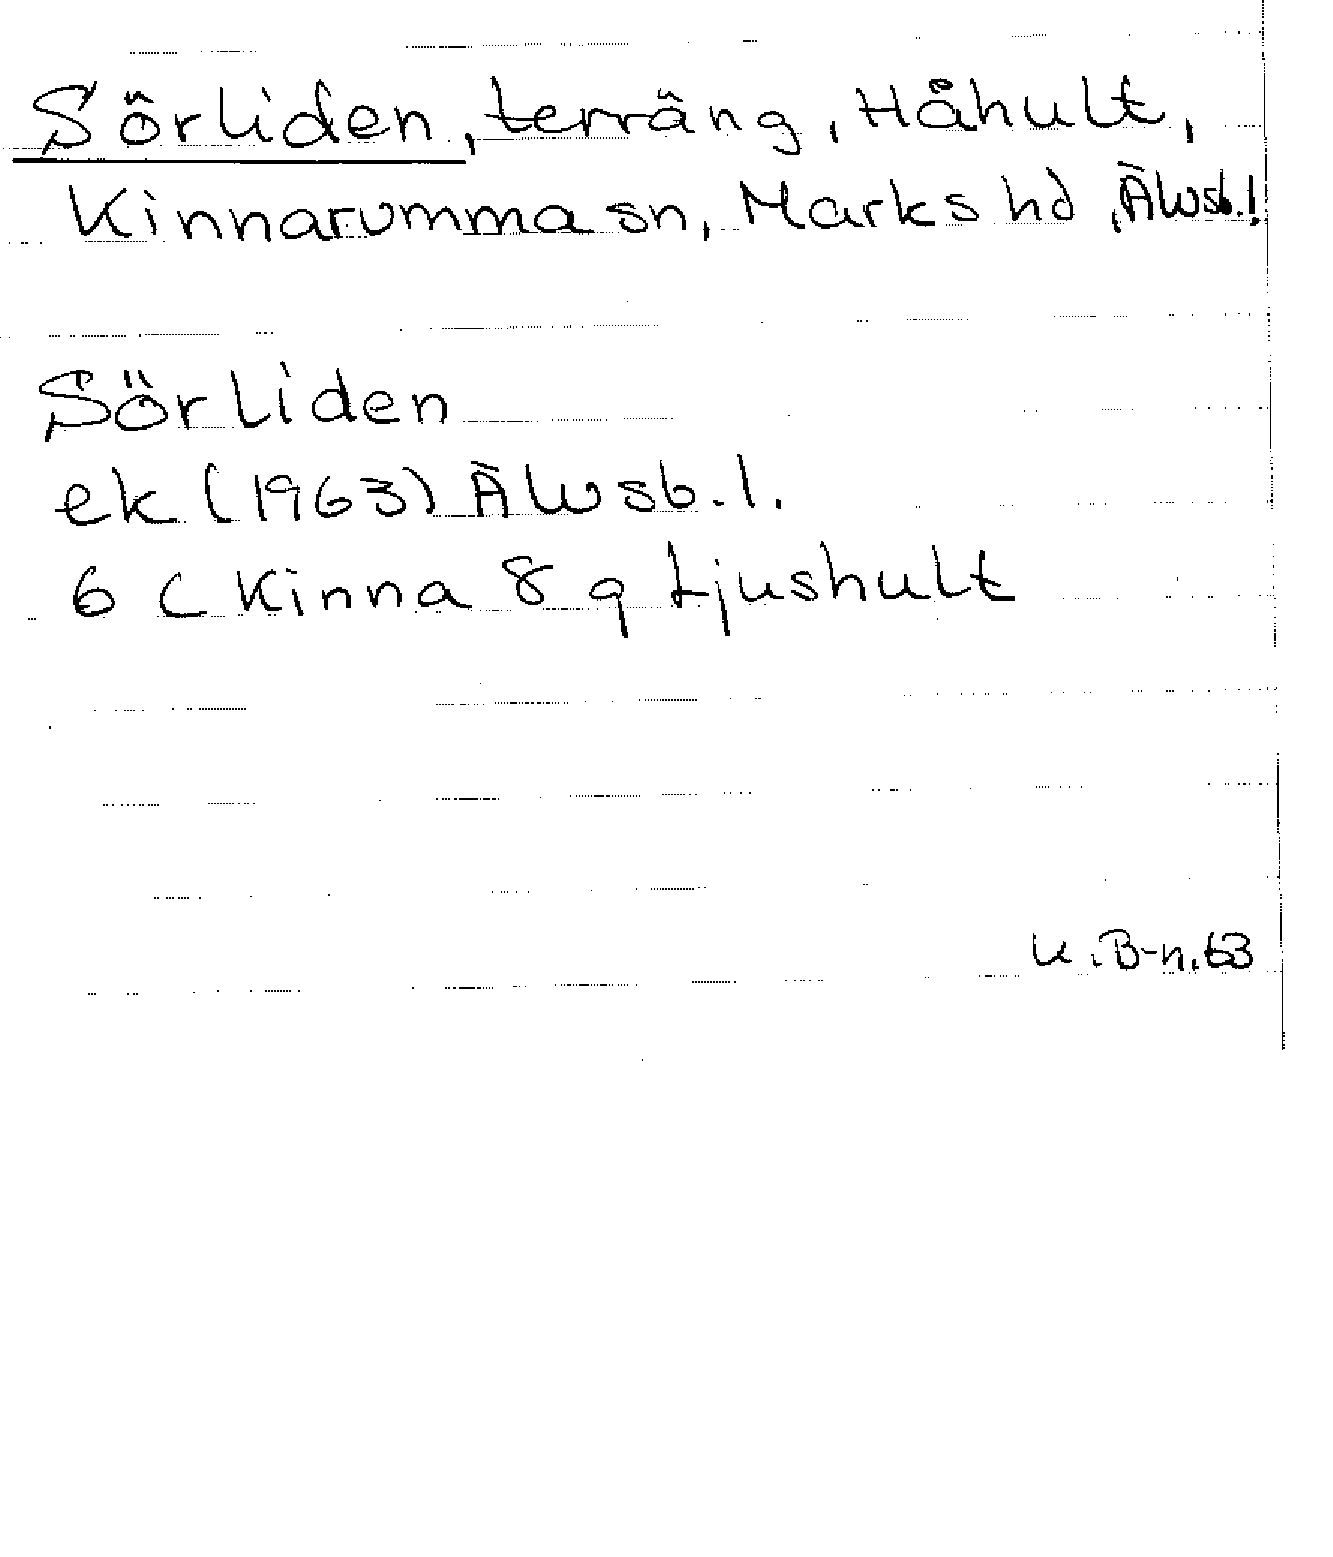 Sörliden, terräng, Håhult,
Kinnarumma sn, Marks hd, Älvsb.l.
Sörliden
ek (1963) Älvsb.l.
6 C Kinna 8 g Ljushult
U.B-n.63